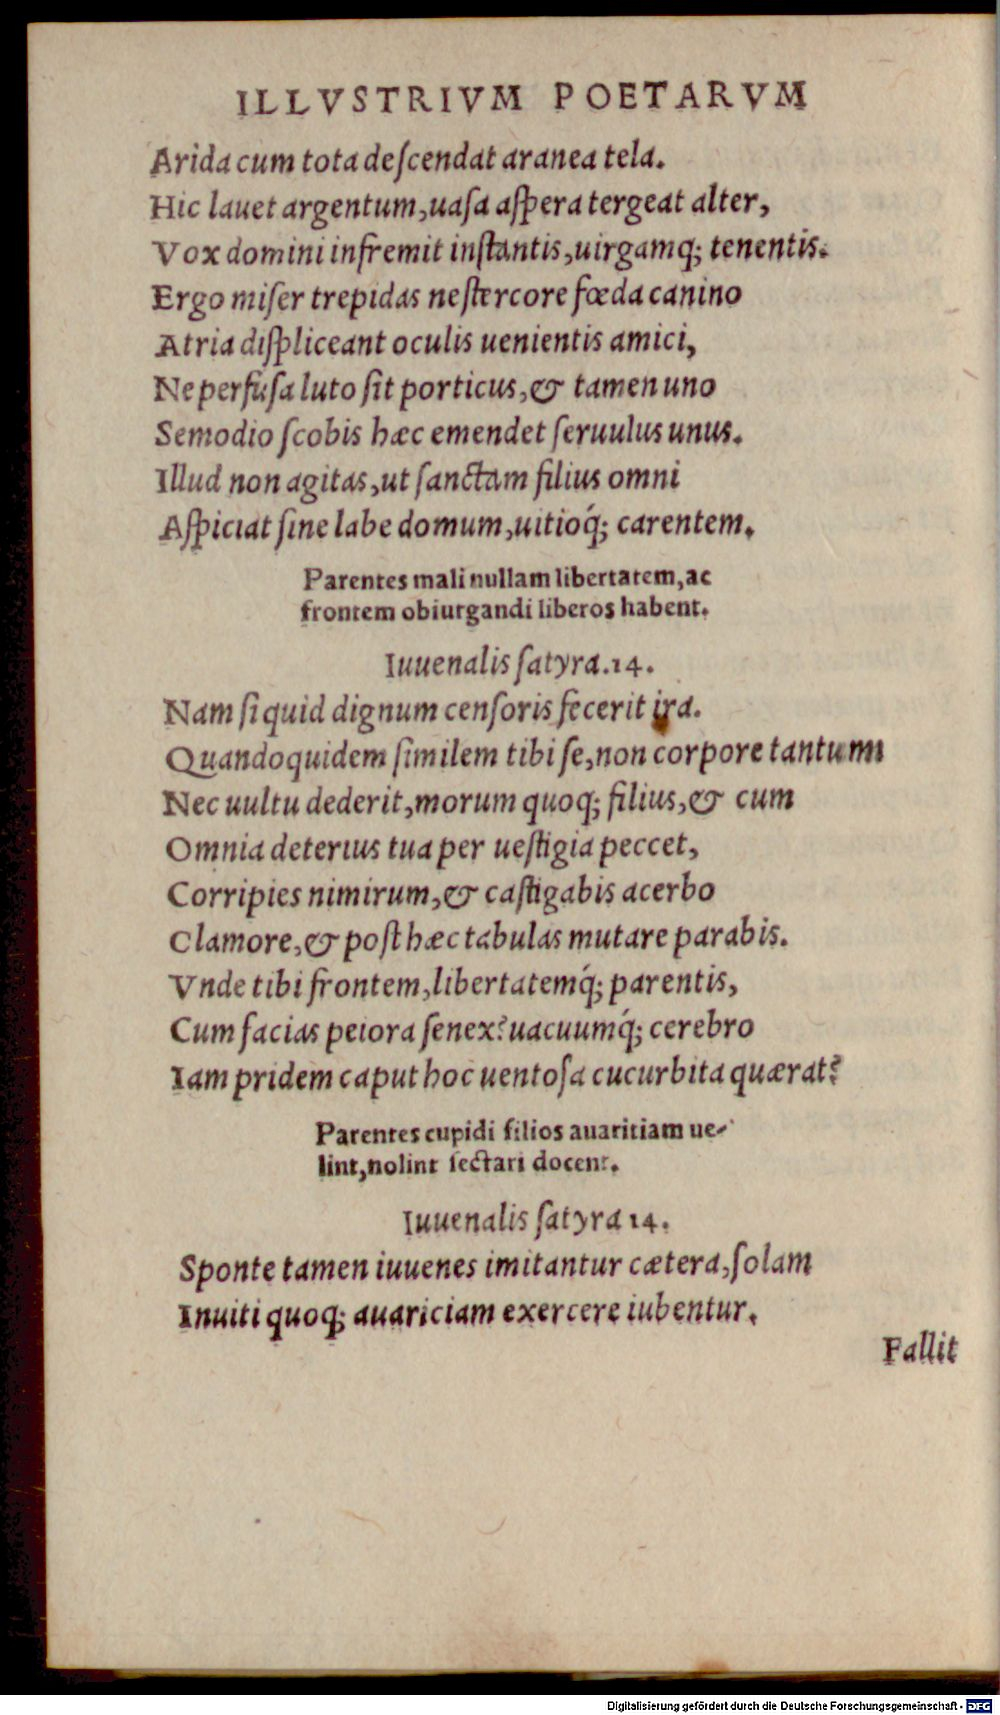 ILLVSTRIVM POETARVM
Arida cum tota deſcendat aranea tela.
Hic lauet argentum, uaſa aſpera tergeat alter,
Vox domini infremit inſtantis, uirgamq́; tenentis.
Ergo miſer trepidas ne ſtercore fœda canino
Atria diſpliceant oculis uenientis amici,
Ne perfuſa luto ſit porticus, & tamen uno
Semodio ſcobis hæc emendet ſeruulus unus.
Illud non agitas, ut ſanctam filius omni
Aſpiciat ſine labe domum, uitioq́; carentem.
Parentes mali nullam libertatem, ac
frontem obiurgandi liberos habent.
Iuuenalis ſatyra. 14.
Nam ſi quid dignum cenſoris fecerit ira.
Quandoquidem ſimilem tibi ſe, non corpore tantum
Nec uultu dederit, morum quoq; filius, & cum
Omnia deterius tua per ueſtigia peccet,
Corripies nimirum, & caſtigabis acerbo
Clamore, & poſt hæc tabulas mutare parabis.
Vnde tibi frontem, libertatemq́; parentis,
Cum facias peiora ſenex? uacuumq́; cerebro
Iam pridem caput hoc uentoſa cucurbita quærat?
Parentes cupidi filios auaritiam ue-
lint, nolint ſectari docent.
Iuuenalis ſatyra 14.
Sponte tamen iuuenes imitantur cætera, ſolam
Inuiti quoq; auariciam exercere iubentur.
Fallit
Digitalisierung gefördert durch die Deutsche Forschungsgemeinschaft - DFG